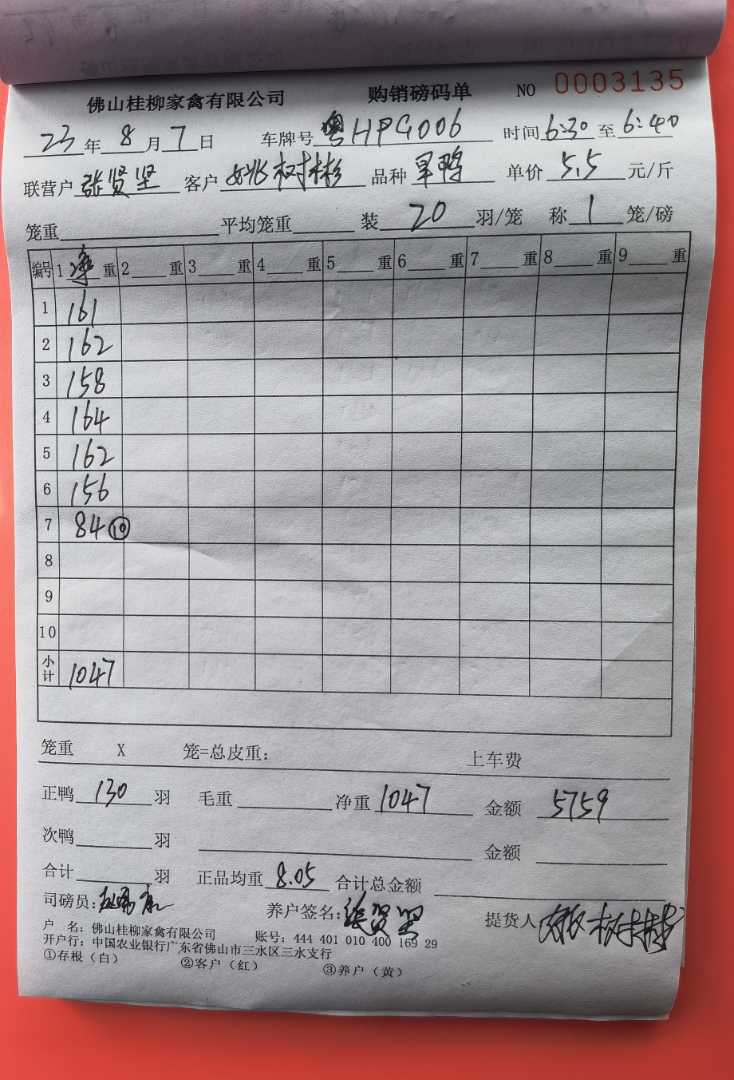 佛山桂柳家禽有限公司 购销磅码单 NO 0003135
23年8月7日 车牌号 粤HPG006 时间6:30至6:40
联营户 张贤坚 客户 姚树彬 品种 旱鸭 单价 5.5 元/斤
笼重 平均笼重 装 20 羽/笼 称 1 笼/磅
编号 1 净 重 2 重 3 重 4 重 5 重 6 重 7 重 8 重 9 重
1 161
2 162
3 158
4 164
5 162
6 156
7 84 ⑩
8
9
10
小计 1047
笼重 X 笼=总皮重: 上车费
正鸭 130 羽 毛重 净重 1047 金额 5759
次鸭 羽 金额
合计 羽 正品均重 8.05 合计总金额
司磅员: 养户签名: 张贤坚 提货人
户 名: 佛山桂柳家禽有限公司 账号: 444 401 010 400 169 29
开户行: 中国农业银行广东省佛山市三水区三水支行
①存根（白） ②客户（红） ③养户（黄）